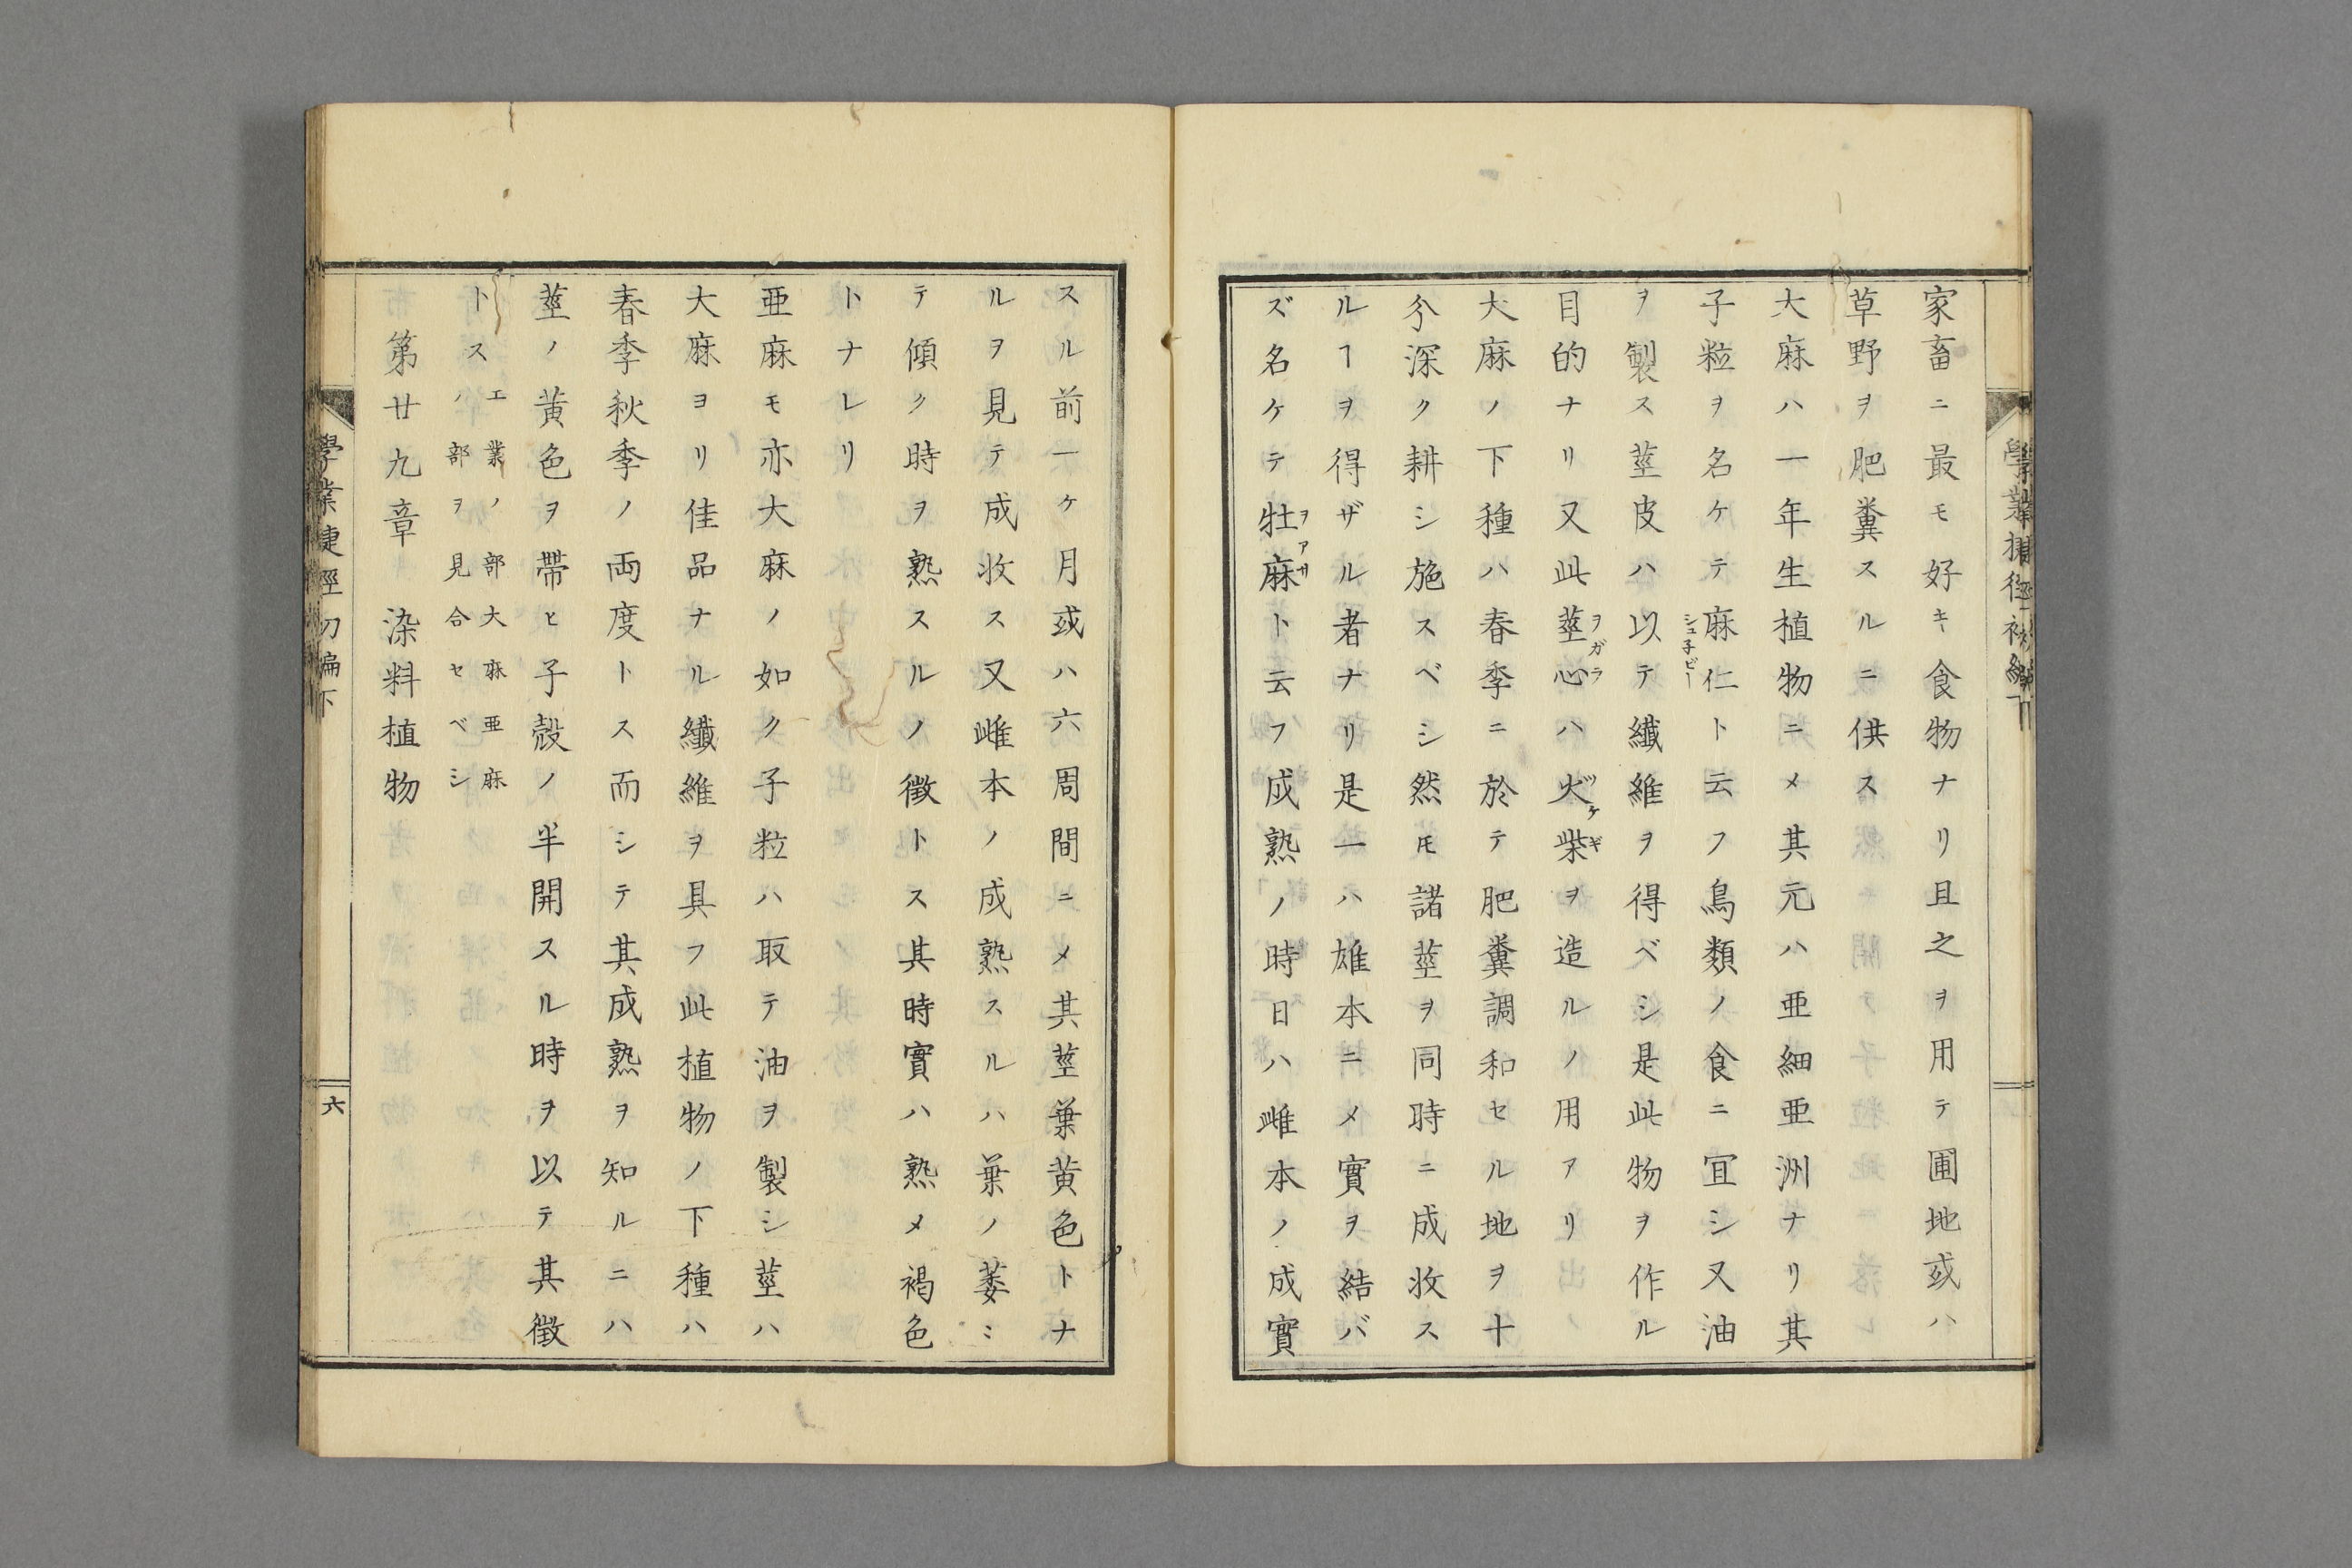 家畜ニ最モ好キ食物ナリ且之ヲ用テ圃地或ハ
草野ヲ肥糞スルニ供ス
大麻ハ一年生植物ニメ其元ハ亜細亜洲ナリ其
子粒ヲ名ケテ麻仁ト云フ鳥類ノ食ニ宜シ又油
シュ子ビー
ヲ製ス莖皮ハ以テ纎維ヲ得ベシ是此物ヲ作ル
目的ナリ又此莖心ハ火柴ヲ造ルノ用アリ
ヲガラ
ツケギ
大麻ノ下種ハ春季ニ於テ肥糞調和セル地ヲ十
分深ク耕シ施スベシ然モ諸莖ヲ同時ニ成收ス
ルヿヲ得ザル者ナリ是一ハ雄本ニメ實ヲ結バ
ズ名ケテ牡麻ト云フ成熟ノ時日ハ雌本ノ成實
ヲアサ
スル前一ケ月或ハ六周間ニメ其莖葉黄色トナ
ルヲ見テ成收ス又雌本ノ成熟スルハ葉ノ萎ミ
テ傾ク時ヲ熟スルノ徴トス其時實ハ熟メ褐色
トナレリ
亜麻モ亦大麻ノ如ク子粒ハ取テ油ヲ製シ莖ハ
大麻ヨリ佳品ナル纎維ヲ具フ此植物ノ下種ハ
春季秋季ノ両度トス而シテ其成熟ヲ知ルニハ
莖ノ黄色ヲ帶ヒ子殻ノ半開スル時ヲ以テ其徴
トス
エ業ノ部大麻亜麻
ノ部ヲ見合セベシ
第廿九章 染料植物
學業捷徑初編下
六